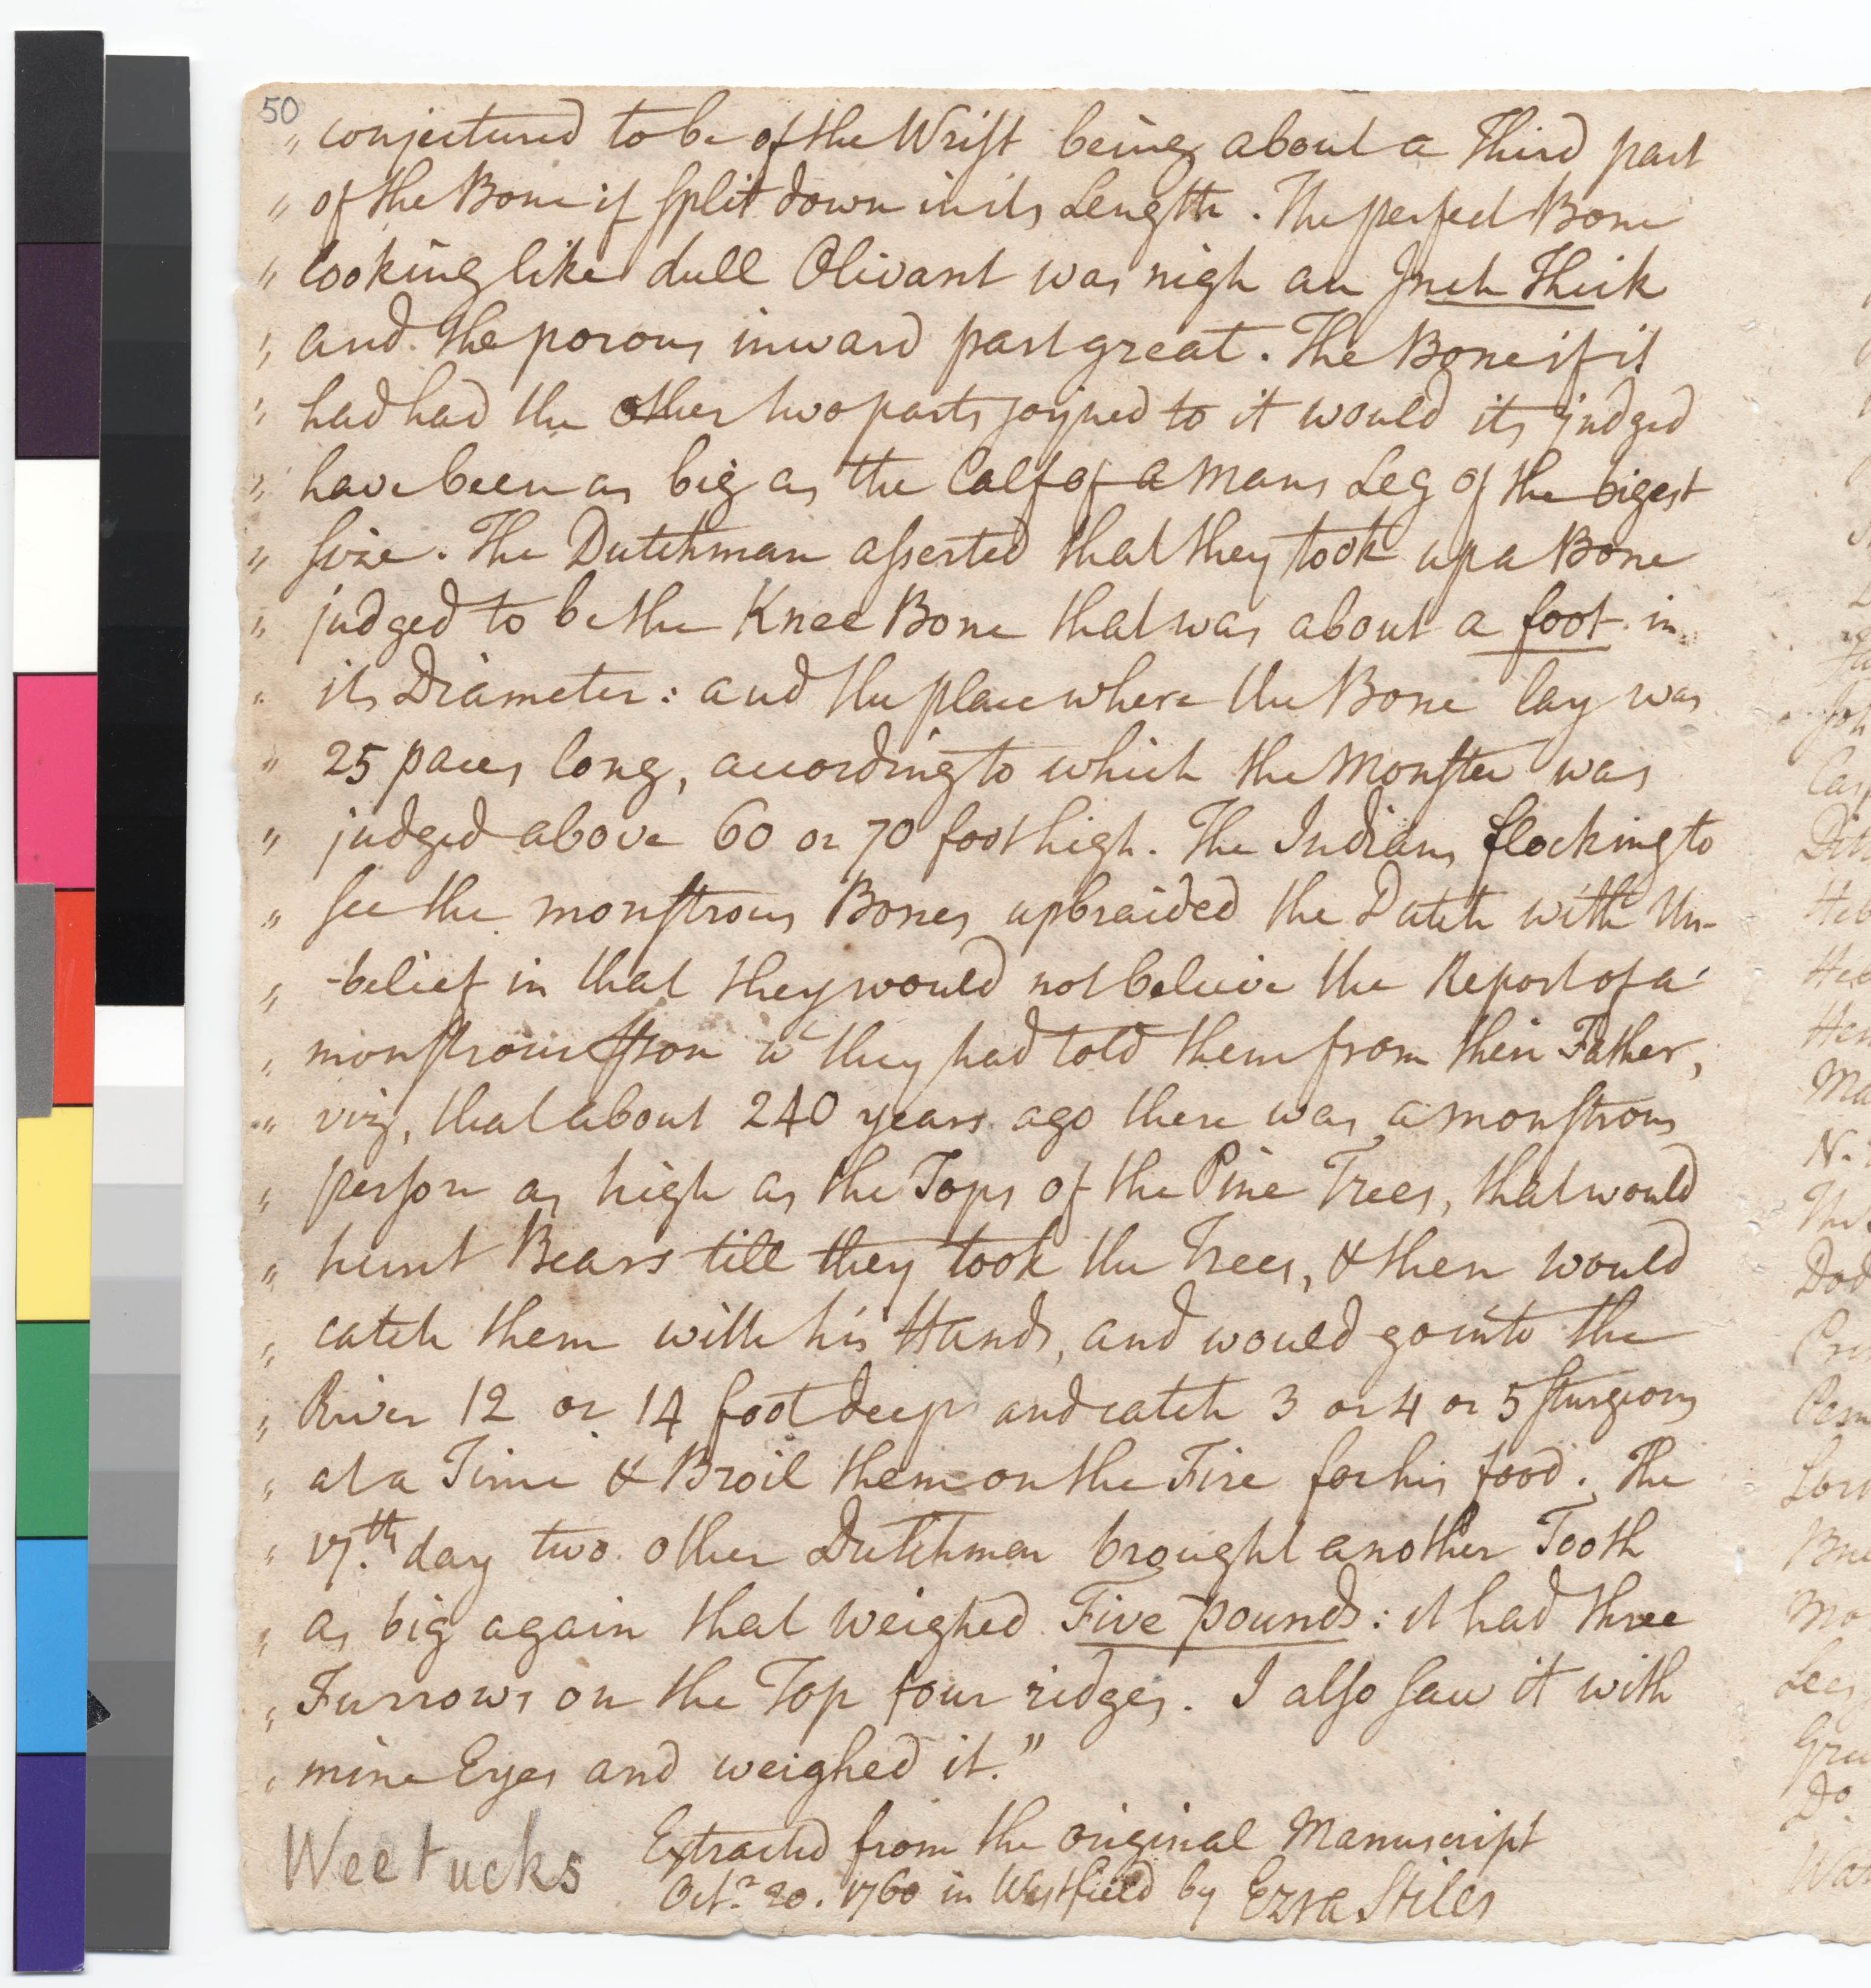 50
" conjectured to be of the Wrist being about a Third part
" of the Bone if split down in its Length . The perfect Bone
" looking like dull Olivant was nigh an Inch Thick
" and the porous inward part great . The Bone if it
" had had the other two parts joyned to it would its judged
" have been as big as the Calf of a mans Leg of the bigest
" size . The Dutchman asserted that they took up a Bone
" judged to be the Knee Bone that was about a foot in
" its Diameter : and the place where the Bone lay was
" 25 paces long , according to which the Monster was
" judged above 60 or 70 foot high . The Indians flocking to
" see the monstrous Bones upbraided the Dutch with Un-
" -belief in that they would not beleive the Report of a
" monstrous they had told them from their Father ,
" viz , that about 240 years ago there was a monstrous
" person as high as the Tops of the Pine Trees , that would
" hunt Bears till they took the Trees , & then would
" catch them with his Hands , and would go into the
" River 12 or 14 foot deep and catch 3 or 4 or 5 sturgeons
" at a Time & Broil them on the Fire for his food . The
" 17.th day two other Dutchmen brought another Tooth
" as big again that weighed Five pounds : it had three
" Furrows on the Top four ridges . I also saw it with
" mine Eyes and weighed it . "
Weetucks
Extracted from the original Manuscript
Octr 20 . 1760 in Westfield by Ezra Stiles